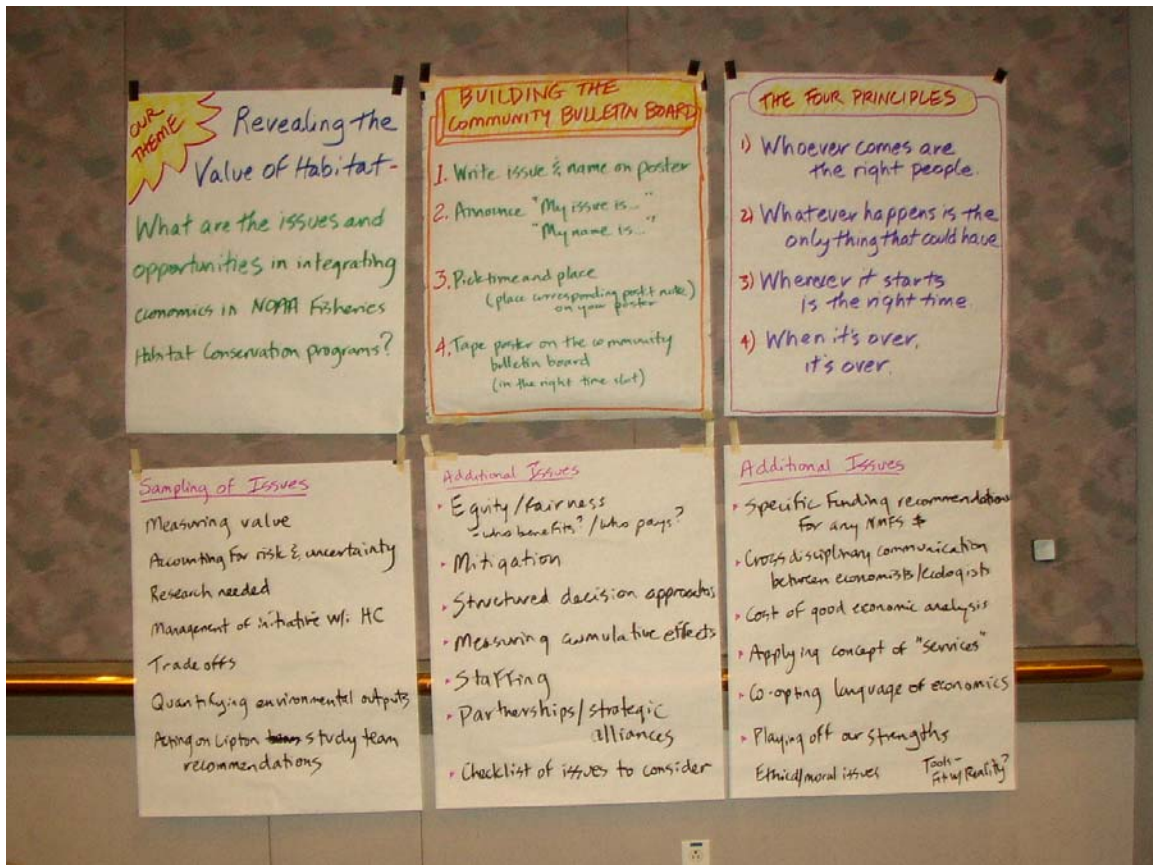 OUR
THEME
Revealing the
Value of Habitat-
What are the issues and
opportunities in integrating
economics in NOAA Fisheries
Habitat Conservation programs?
BUILDING THE
COMMUNITY BULLETIN BOARD
1. Write issue & name on poster
2. Announce "My issue is..."
"My name is..."
3. Pick time and place
(place corresponding post-it note)
on your poster
4. Tape poster on the community
bulletin board
(in the right time slot)
THE FOUR PRINCIPLES
1) Whoever comes are
the right people.
2) Whatever happens is the
only thing that could have
3) Whenever it starts
is the right time.
4) When it's over,
it's over.
Sampling of Issues
Measuring value
Accounting for risk & uncertainty
Research needed
Management of initiative w/i HC
Trade offs
Quantifying environmental outputs
Acting on Lipton study team
recommendations
Additional Issues
• Equity/fairness
- who benefits? / who pays?
• Mitigation
• Structured decision approaches
• Measuring cumulative effects
• Staffing
• Partnerships/strategic
alliances
• Checklist of issues to consider
Additional Issues
• Specific funding recommendations
for any NMFS $
• Cross disciplinary communication
between economists/ecologists
• Cost of good economic analysis
• Applying concept of "services"
• Co-opting language of economics
• Playing off our strengths
Ethical/moral issues
Tools -
Fit w/ Reality?